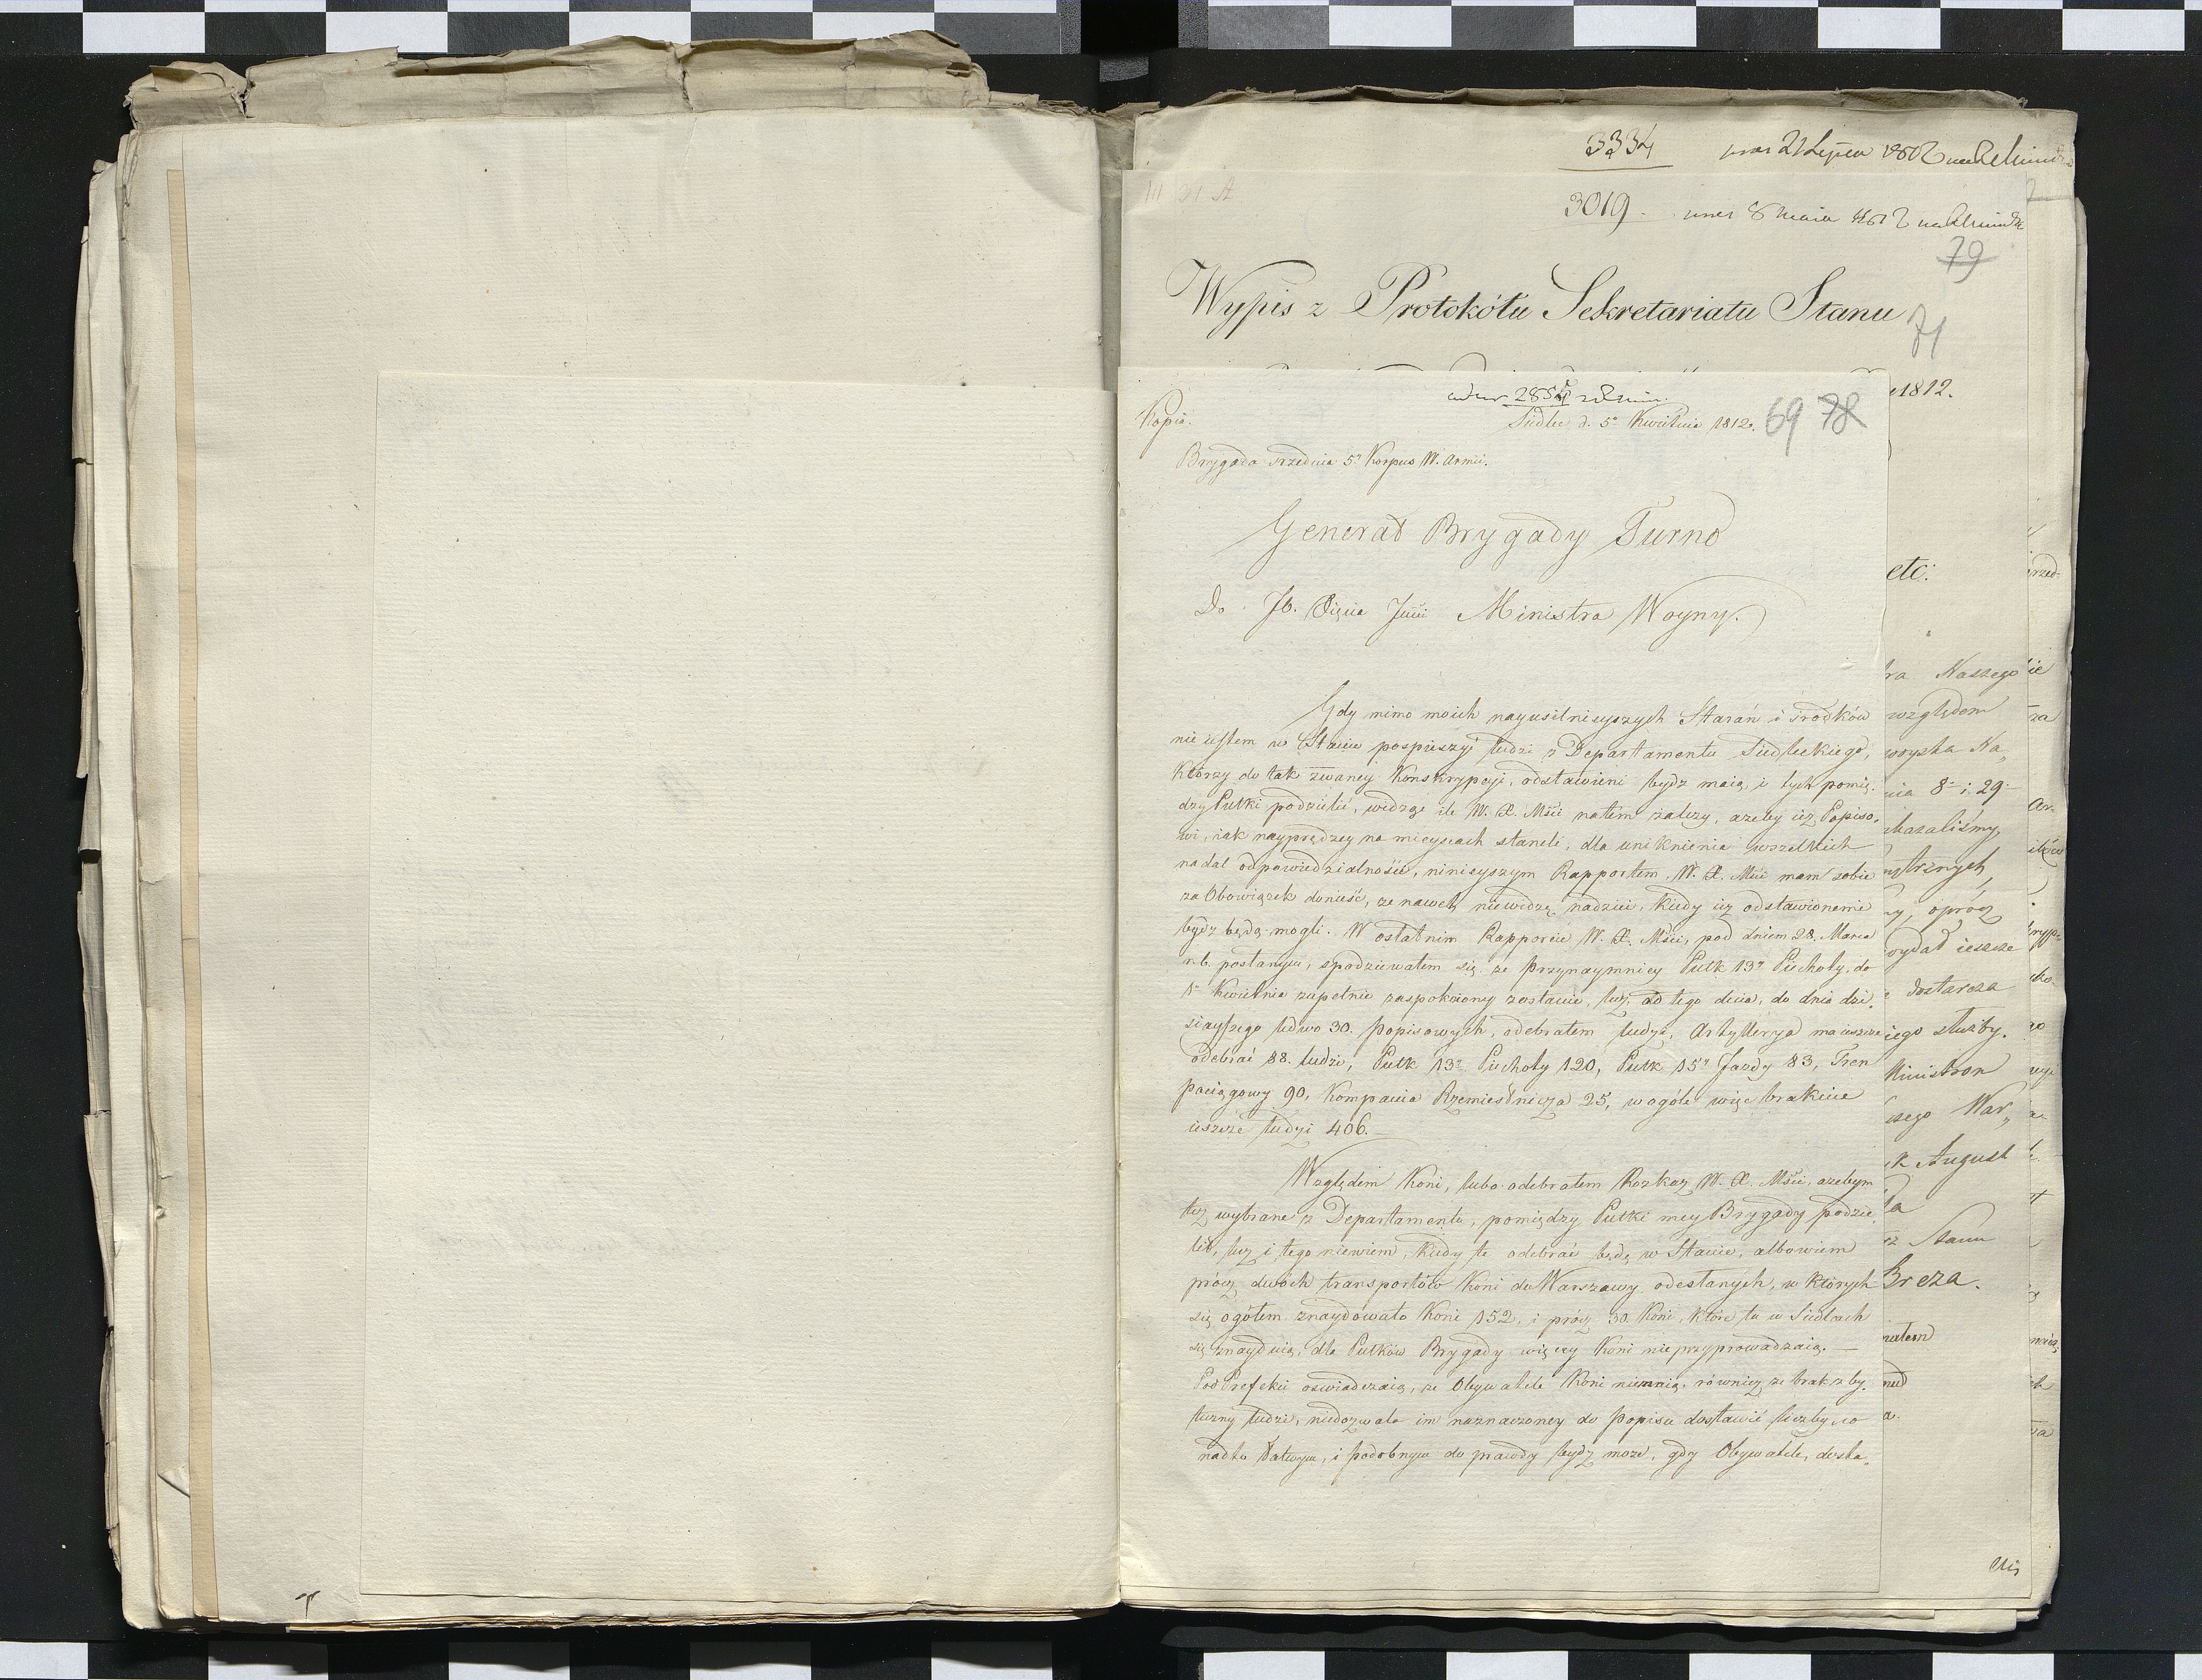 3334
3019.
79
Wypis z Protokółu Sekretariatu Stanu
71
1812.
Kopia.
Siedlce d. 5° Kwietnia 1812.
69 78
Brygada 5° Korpus W. Armii.
Generał Brygady Turno
Do Ministra Woyny.
Gdy mimo moich nayusilnieyszych Starań i środków
nie iestem w Stanie pospieszyć ludzi z Departamentu Siedleckiego,
którzy do tak zwaney Konskrypcyi, odstawieni bydź maią, i tych pomię-
dzy Pułki podzielić, widząc ile W. X. Mści natém zależy, ażeby ciż Popiso-
wi, iak nayprędzey na mieyscach staneli, dla uniknienia wszelkich
nadal odpowiedzialności, ninieyszym Rapportem, W. X. Mści mam sobie
za Obowiązek donieść, że nawet niewidzę nadziei, kiedy ciż odstawionemi
bydź będą mogli. W ostatnim Rapporcie W. X. Mści, pod dniem 28. Marca
r. b. posłanym, spodziewałem się że przynaymniey Pułk 13y Piechoty, do
1° Kwietnia zupełnie zaspokoiony zostanie, lecz od tego dnia, do dnia dzi-
sieyszego ledwo 30. popisowych, odebrałem ludzi, Artylleryа ma ieszcze
odebrać 88. ludzi, Pułk 13y Piechoty 120, Pułk 15y Jazdy 83, Tren
pociągowy 90, Kompania Rzemieśnicza 25, w ogóle więc brakuie
ieszcze ludzi 406.
Względem Koni, lubo odebrałem Rozkaz W. X. Mści, ażebym
też wybrane z Departamentu, pomiędzy Pułki mey Brygady podzie-
lił, lecz i tego niewiem, kiedy te odebrać będę w Stanie, albowiem
prócz dwóch transportów Koni do Warszawy odesłanych, w których
się ogółem znaydowało Koni 152, i prócz 30 Koni, które tu w Siedlcach
się znayduią, dla Pułków Brygady więcey Koni nieprzyprowadzaią. —
Pod Prefekci oświadczaią, że Obywatele Koni niemaią, również że brak zby-
teczny ludzi, niedozwala im naznaczoney do popisu dostawić liczby, co
nadto łatwym, i podobnym do prawdy bydź może, gdy Obywatele, dosta-
etc:
Naszego
względem
woyska Na„
8° i 29°
oprócz
wydał ieszcze
dostarcza
służby.
Ministrom
War„
August
Stanu
Breza.